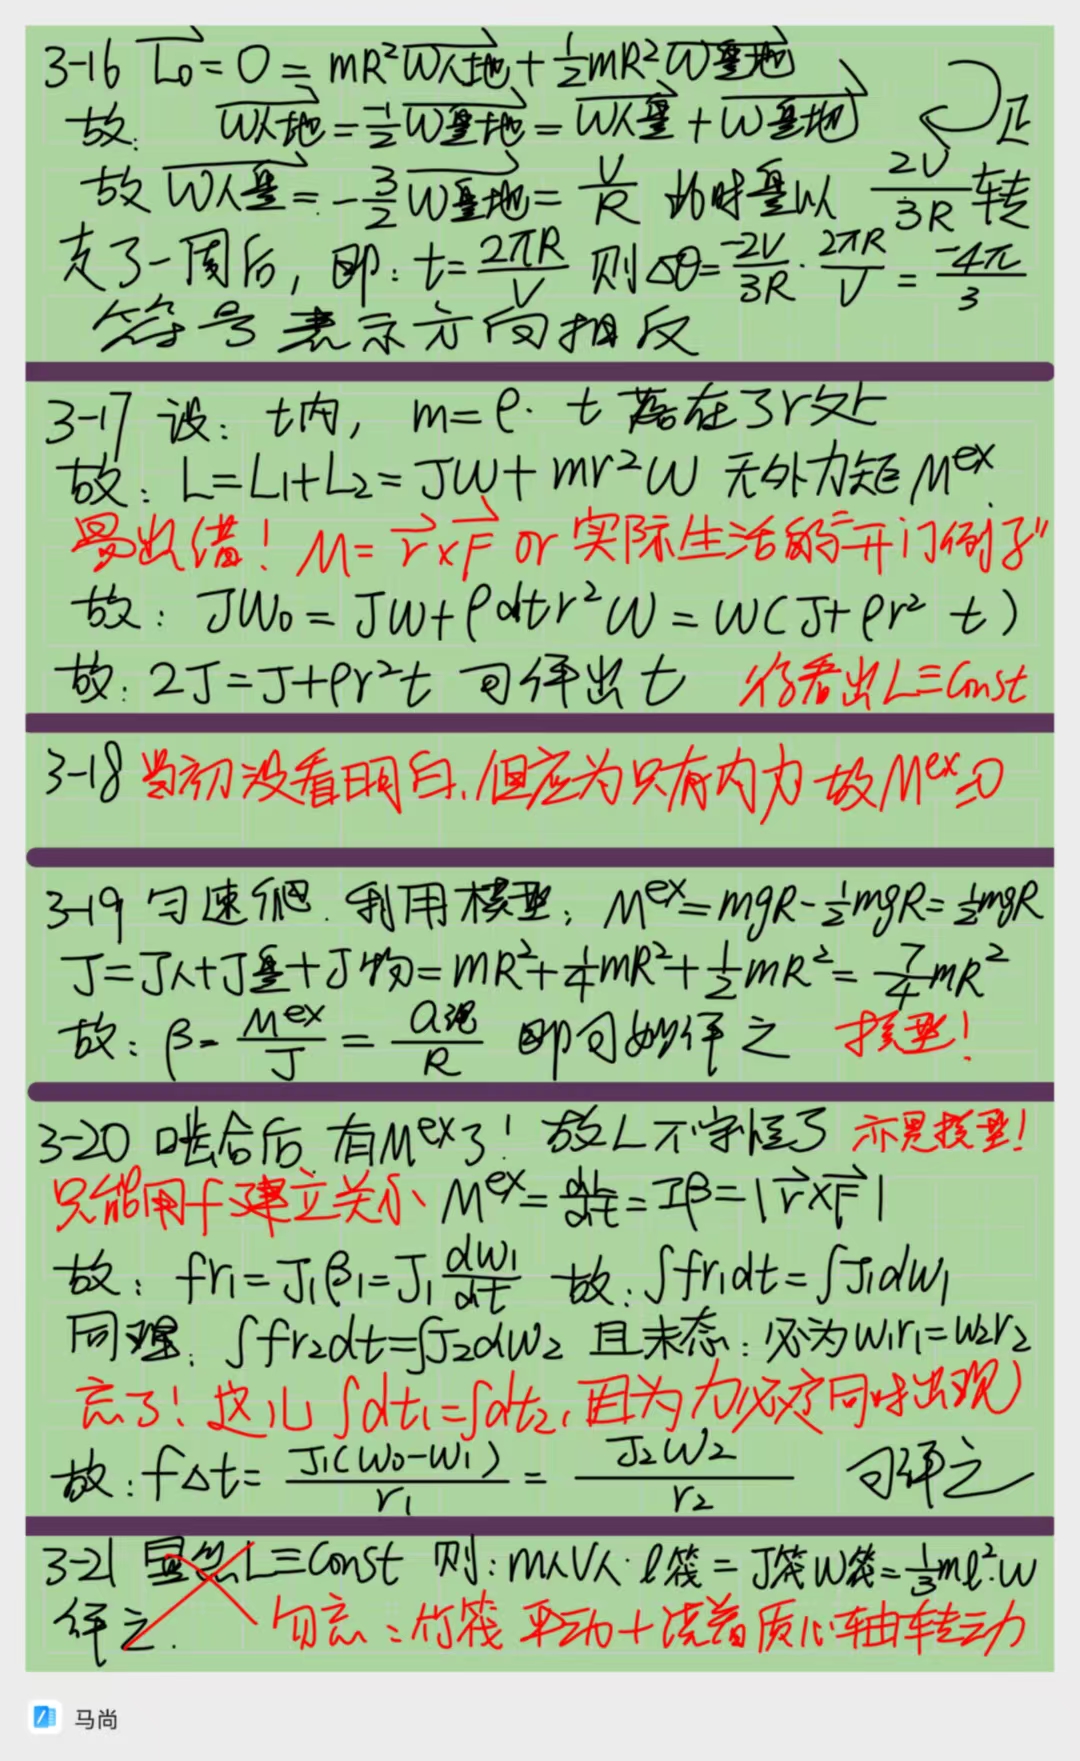 3-16 L₀ = 0 = mR²W人地 + ½mR²W盘地
故: W人地 = -½W盘地 = W人盘 + W盘地 正
故 W人盘 = -3/2 W盘地 = V/R 此时盘以 2V/3R 转
走了一周后, 即: t = 2πR/V 则 Δθ = -2V/3R · 2πR/V = -4π/3
符号表示方向相反
3-17 设: t内, m = ρ· t 落在了r处
故: L = L₁+L₂ = JW + mr²W 无外力矩 Mᵉˣ.
易出错! M = r×F or 实际生活的"开门例子"
故: JW₀ = JW + ρdtr²W = W(J + ρr² t)
故: 2J = J + ρr²t 可解出 t 得看出 L≡Const
3-18 当初没看明白, 但应为只有内力 故Mᵉˣ=0
3-19 匀速爬. 利用模型: Mᵉˣ = mgR - ½mgR = ½mgR
J = J人 + J盘 + J物 = mR² + ¼mR² + ½mR² = 7/4 mR²
故: β = Mᵉˣ/J = a绳/R 即可妙解之 模型!
3-20 啮合后 有Mᵉˣ了! 故L不守恒了 亦是模型!
只能用f建立关系 Mᵉˣ = dL/dt = Iβ = |r×F|
故: fr₁ = J₁β₁ = J₁ dw₁/dt 故: ∫fr₁dt = ∫J₁dw₁
同理: ∫fr₂dt = ∫J₂dw₂ 且末态: 必为w₁r₁ = w₂r₂
忘了! 这儿 ∫dt₁ = ∫dt₂, 因为力必定同时出现
故: fΔt = J₁(W₀-W₁)/r₁ = J₂W₂/r₂ 可解之
3-21 显然L≡Const 则: m人V人·l筏 = J筏W筏 = ⅓ml²·W
解之.
勿忘: 竹筏 平动+绕着质心轴转动
马尚